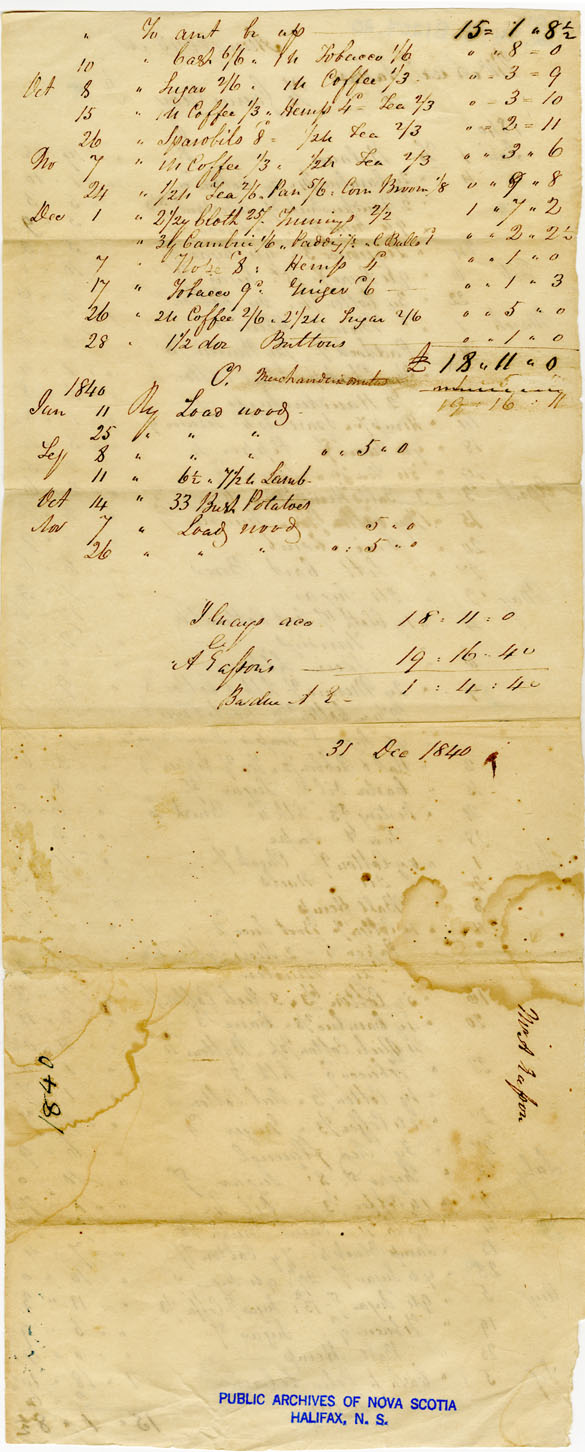 " To amt br up 15 = 1 " 8½
10 " Cash 6/6 " 1 lb Tobacco 1/6 " " 8 = 0
Oct 8 " Sugar 2/6 " 1 lb Coffee 1/3 " = 3 = 9
15 " 1 lb Coffee 1/3 " Hemp 4d = Tea 2/3 " = 3 = 10
26 " Sparobils 8d = 1/2 lb Tea 2/3 " = 2 = 11
No 7 " 1 lb Coffee 1/3 " 1/2 lb Tea 2/3 " " 3 " 6
24 " 1/2 lb Tea 2/6 " Pan 5/6 = Corn Broom 1/8 " " 9 " 8
Dec 1 " 2 1/2 y Cloth 25/ Trimings 2/2 1 " 7 " 2
" 3 y 1/6 " " " 2 " 2½
7 " 8d : Hemp 4 " " 1 " 0
17 " Tobacco 9d = Ginger 6 " " 1 " 3
26 " 2 lb Coffee 2/6 " 2 1/2 lb Sugar 2/6 " " 5 " 0
28 " 1 1/2 doz Buttons " " 1 " 0
£ 18 " 11 " 0
Cr
19 = 16 : 11
1840
Jan 11 By Load wood
25 " " "
8 " " " " " 5 " 0
11 " 6½ " 7 1/2 lb Lamb
Oct 14 " 33 Bush Potatoes
Nov 7 " Load wood 5 " 0
26 " " " " : 5 " 0
aco 18 : 11 : 0
Cr
A 19 : 16 - 4
Ba due A 1 : 4 : 4
31 Dec 1840
Mr A
1840
PUBLIC ARCHIVES OF NOVA SCOTIA
HALIFAX, N. S.